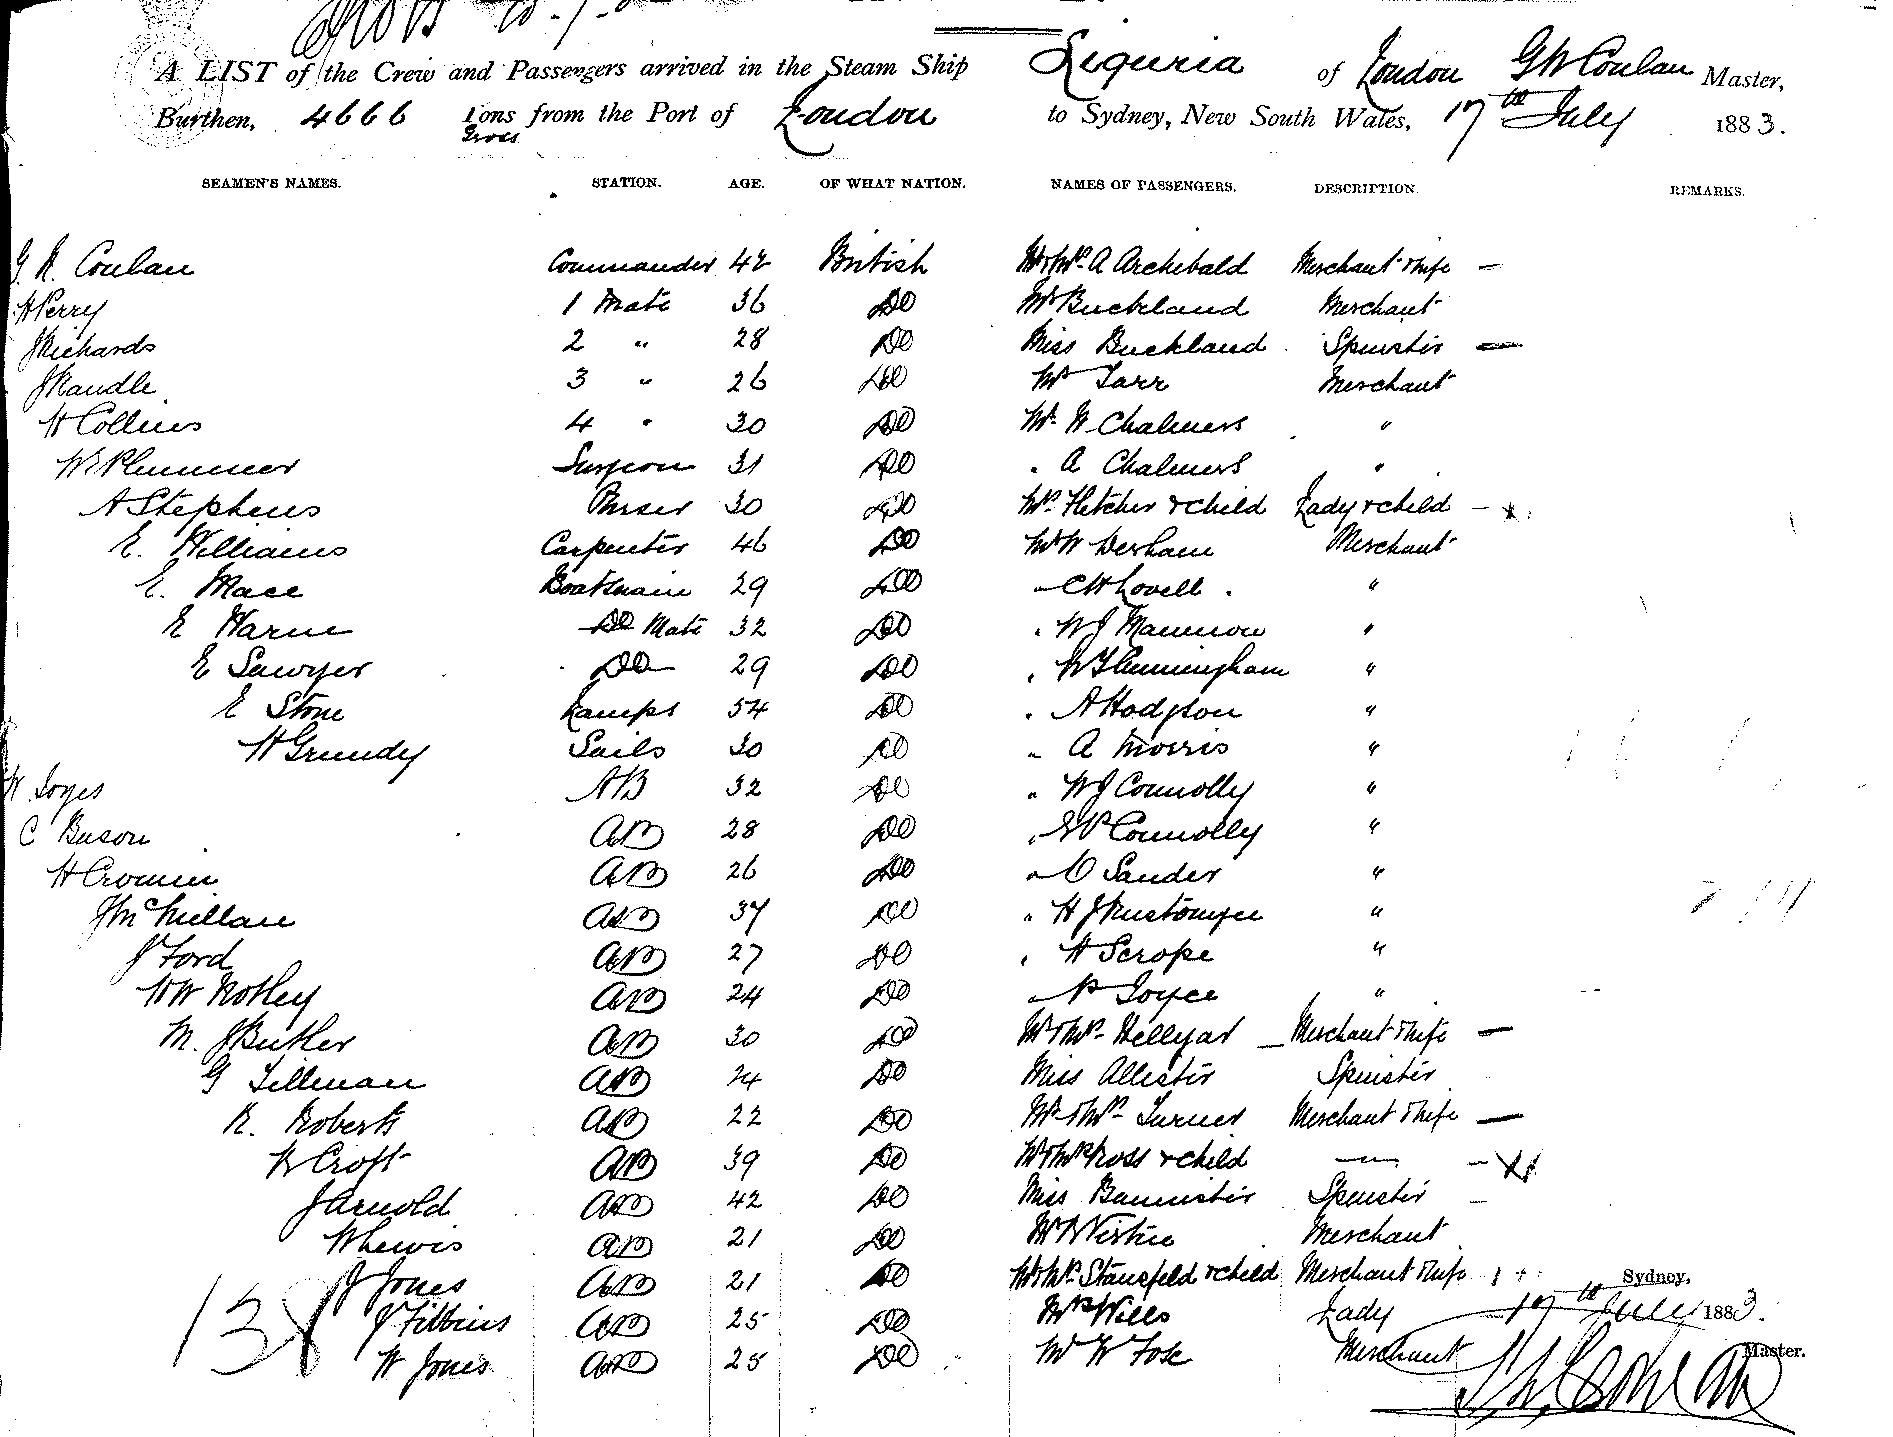 A LIST of the Crew and Passengers arrived in the Steam Ship Liguria of London G N Conlan Master,
Burthen, 4666 Tons Gross from the Port of London to Sydney, New South Wales, 17th July 1883.
SEAMEN'S NAMES. STATION. AGE. OF WHAT NATION. NAMES OF PASSENGERS. DESCRIPTION. REMARKS.
G. N. Conlan Commander 42 British Mr & Mrs. A Archibald Merchant & Wife —
H Perry 1 Mate 36 Do Mr Buckland Merchant
J Richards 2 " 28 Do Miss Buckland Spinster —
J Randle 3 " 26 Do Mr Tarr Merchant
H Collins 4 " 30 Do Mr. W Chalmers "
W E Plummer Surgeon 31 Do " A Chalmers "
A Stephens Purser 30 Do Mrs. Fletcher & Child Lady & child — x
E. Williams Carpenter 46 Do Mr W Derham Merchant
E. Mace Boatswain 29 Do " C H Lovell "
E Warne Do Mate 32 Do " W J "
E Sawyer Do 29 Do " Cunningham "
E Stone Lamps 54 Do " A Hodgson "
H Grundy Sails 30 Do " A Morris "
W. Joyes AB 32 Do " W J Connolly "
C Buson AB 28 Do " Connolly "
H Cronin AB 26 Do " O Sander "
J McMillan AB 37 Do " H J Rustomjee "
J Ford AB 27 Do " H Scrope "
W W Notley AB 24 Do " P Joyce "
M. J Butler AB 30 Do Mr & Mrs. Hellyar — Merchant & Wife —
G Tillman AB 24 Do Miss Allister Spinster
R. Roberts AB 22 Do Mr & Mrs. Turner Merchant & Wife —
W Croft AB 39 Do Mr & Mrs Ross & child — —
J Arnold AB 42 Do Miss Bannister Spinster —
W Lewis AB 21 Do Mr W Virtue Merchant
J Jones AB 21 Do Mr & Mrs. Stansfeld & Child Merchant & Wife Sydney,
J Tibbins AB 25 Do Mrs Wills Lady 17th July 1883.
W Jones AB 25 Do Mr W Fox Merchant Master.
138